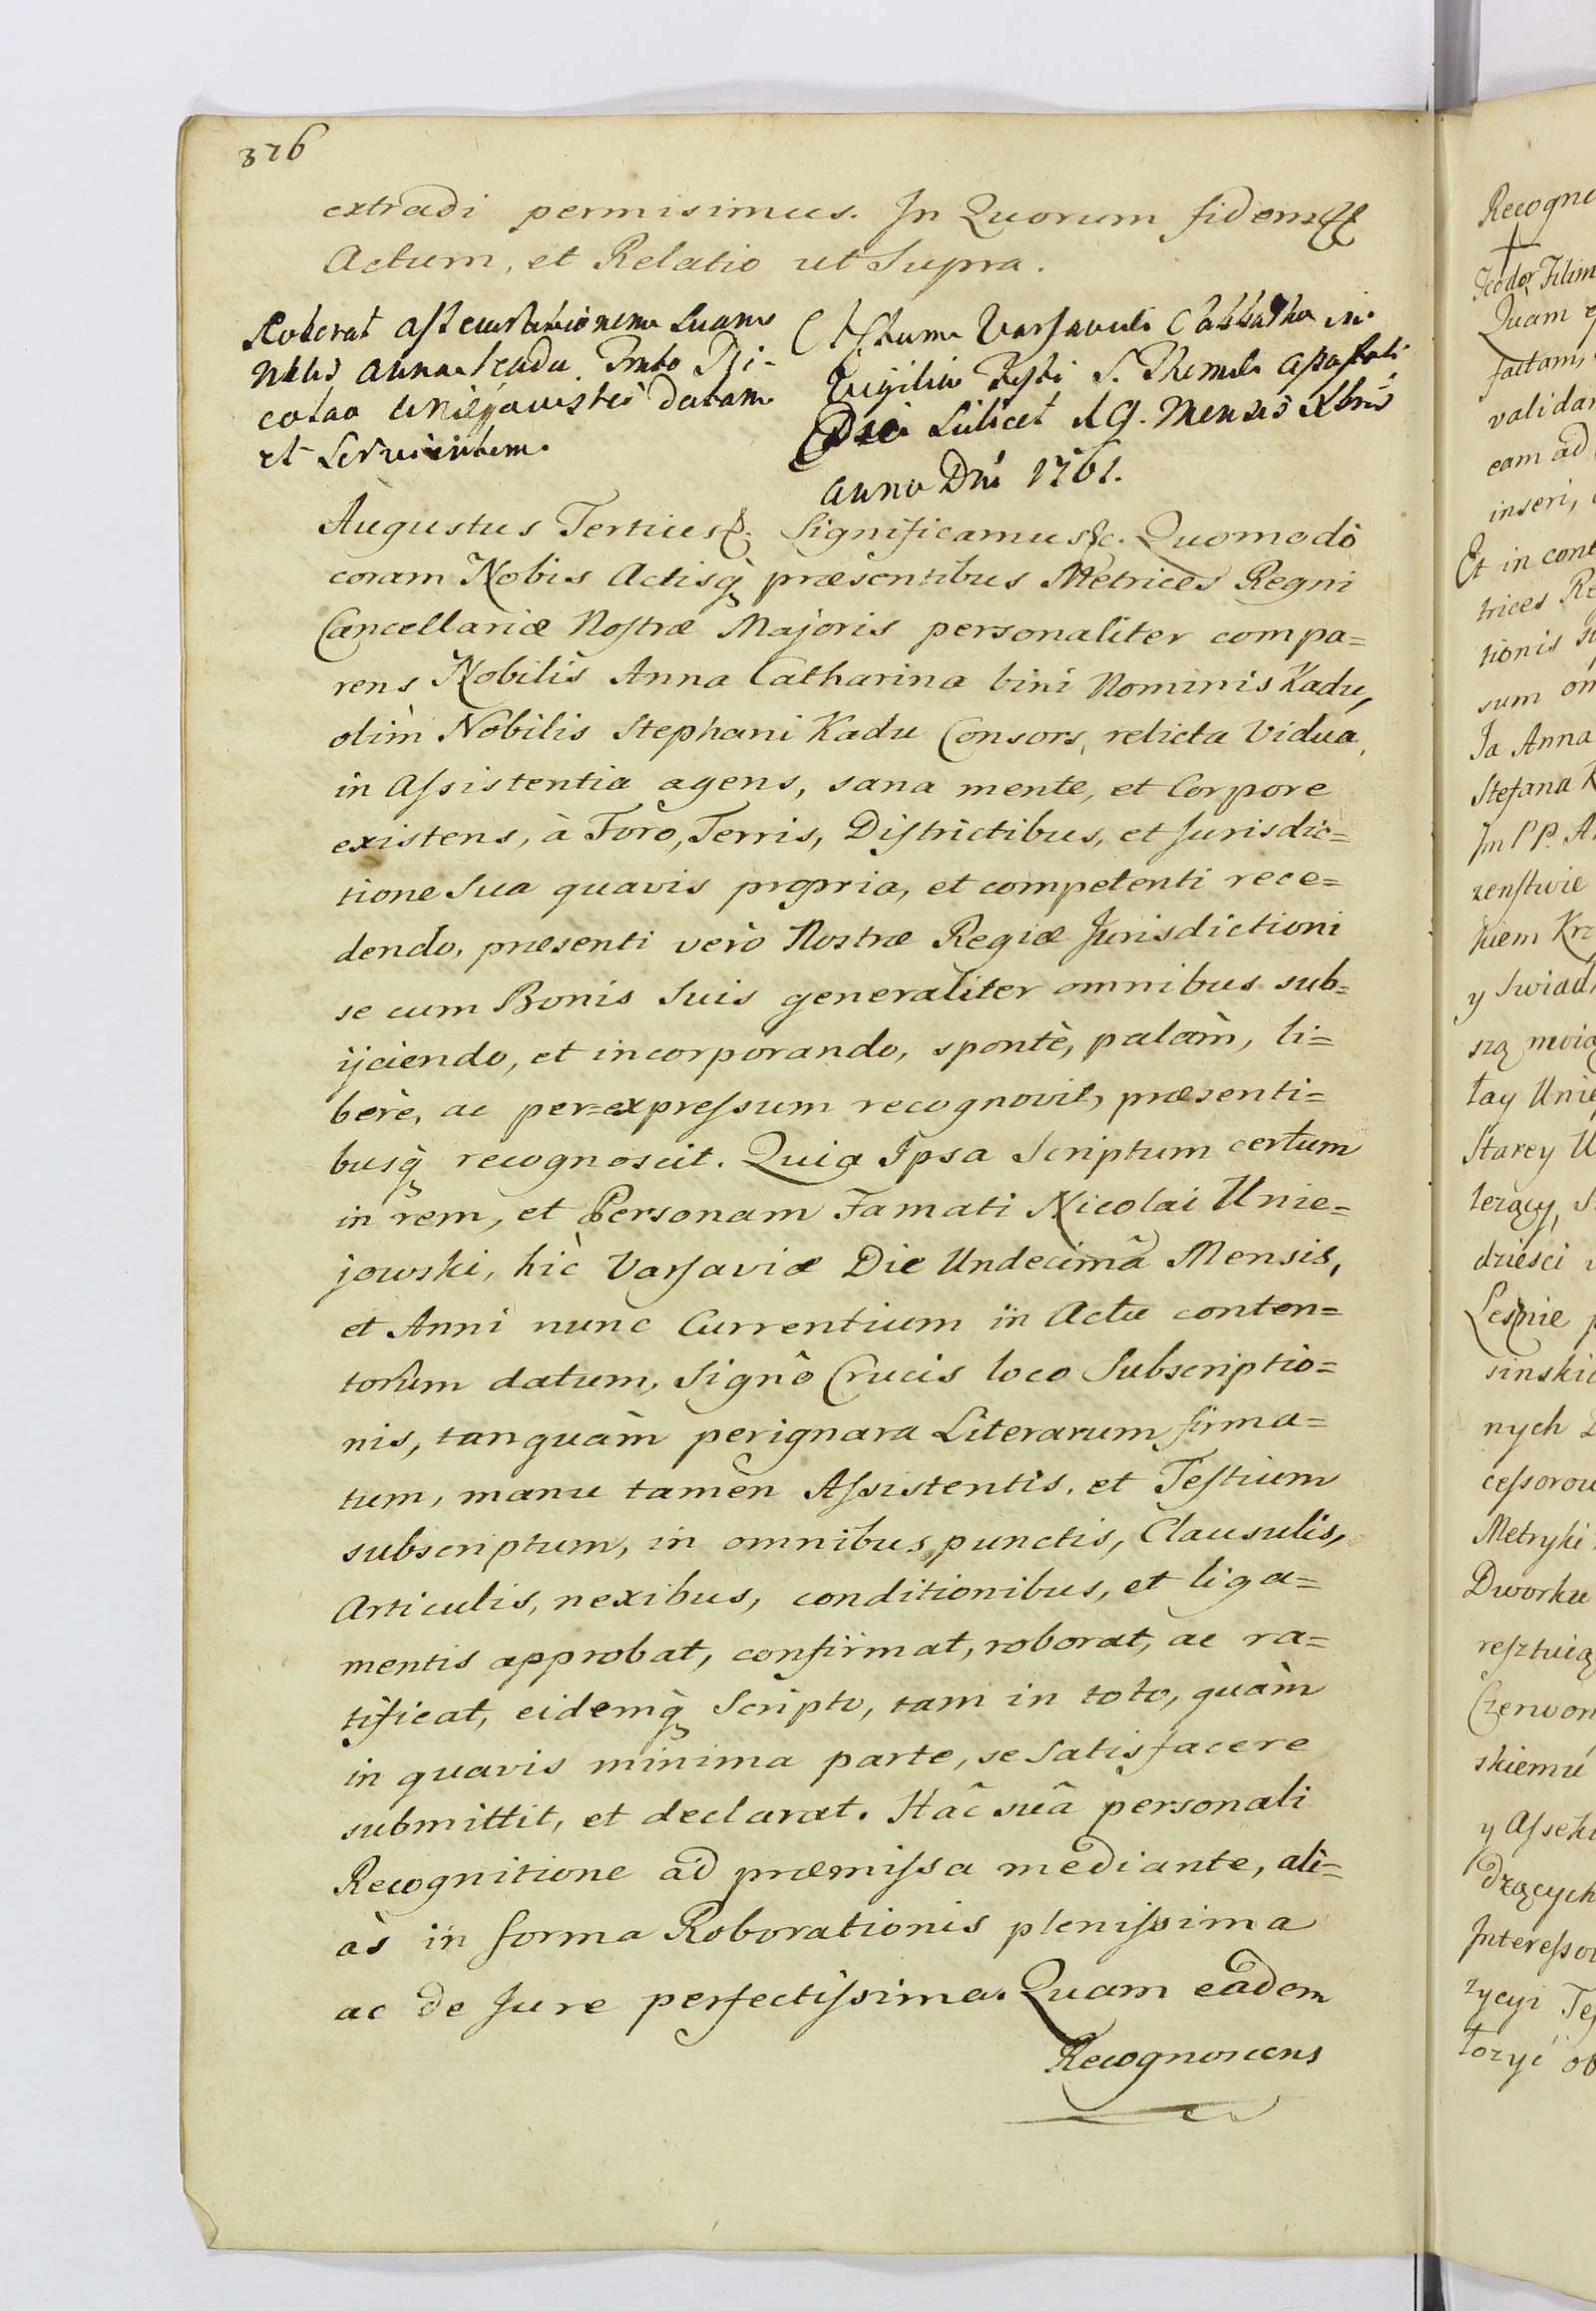 376
extradi permisimus. In Quorum fidem &c
Actum, et Relatio ut Supra.
Roborat assecurationem suam
Nblis Anna Kadu Fmto Ni-
colao Uniejowski datam
et servientem.
Actum Varsaviæ Sabbatho in
Vigilia Festi S. Thomæ Apostoli
Die scilicet 19. Mensis Xbris
Anno Dni 1761.
Augustus Tertius &c. Significamus &c. Quomodò
coram Nobis Actisq̀ præsentibus Metrices Regni
Cancellariæ Nostræ Majoris personaliter compa=
rens Nobilis Anna Catharina bini Nominis Kadu,
olim Nobilis Stephani Kadu Consors, relicta Vidua,
in Assistentia agens, sana mente, et Corpore
existens, à Foro, Terris, Districtibus, et Jurisdic=
tione Sua quavis propria, et competenti rece=
dendo, præsenti verò Nostræ Regiæ Jurisdictioni
se cum Bonis Suis generaliter omnibus sub=
ijciendo, et incorporando, spontè, palàm, li=
berè, ac per=expressum recognovit, præsenti=
busq̀ recognoscit. Quia Ipsa Scriptum certum
in rem, et Personam Famati Nicolai Unie=
jowski, hìc Varsaviæ Die Undecimâ Mensis,
et Anni nunc Currentium in Actu conten=
torum datum, Signô Crucis loco Subscriptio=
nis, tanquàm perignara Literarum firma=
tum, manu tamen Assistentis, et Testium
subscriptum, in omnibus punctis, Clausulis,
Articulis, nexibus, conditionibus, et liga=
mentis approbat, confirmat, roborat, ac ra=
tificat, eidemq̀ Scripto, tam in toto, quàm
in quavis minima parte, se satisfacere
submittit, et declarat. Hâc suâ personali
Recognitione ad præmissa mediante, ali=
às in forma Roborationis plenissima
ac de Jure perfectissima. Quam eadem
Recognoscens